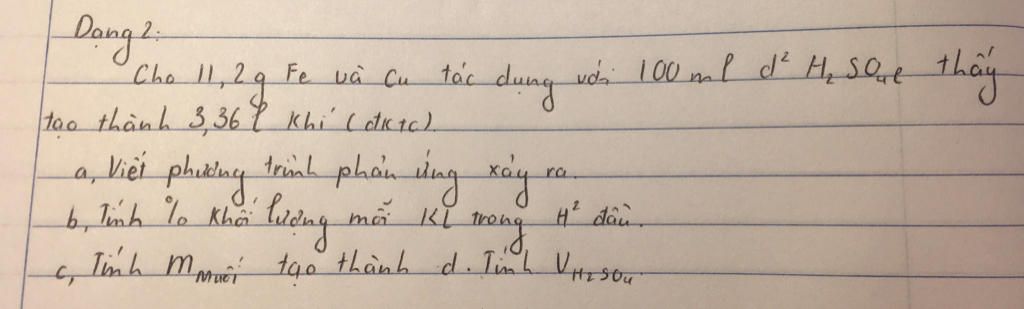 Dạng 2:
Cho 11,2g Fe và Cu tác dụng với 100 ml d² H₂SO₄ l thấy
tạo thành 3,36 l khí (đktc).
a, Viết phương trình phản ứng xảy ra.
b, Tính % khối lượng mỗi KL trong H² đầu.
c, Tính m muối tạo thành d. Tính V H₂SO₄.